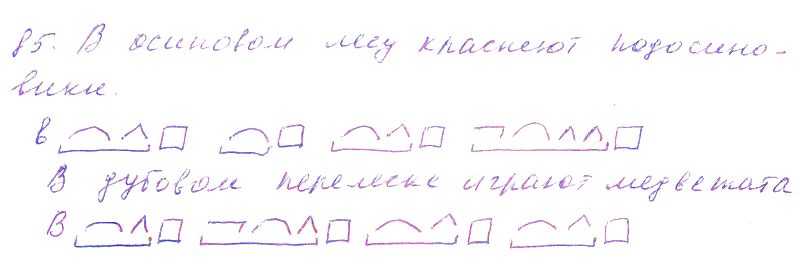 85. В осиновом лесу краснеют подосино-
вики.
в
В дубовом перелеске играют медвежата
В